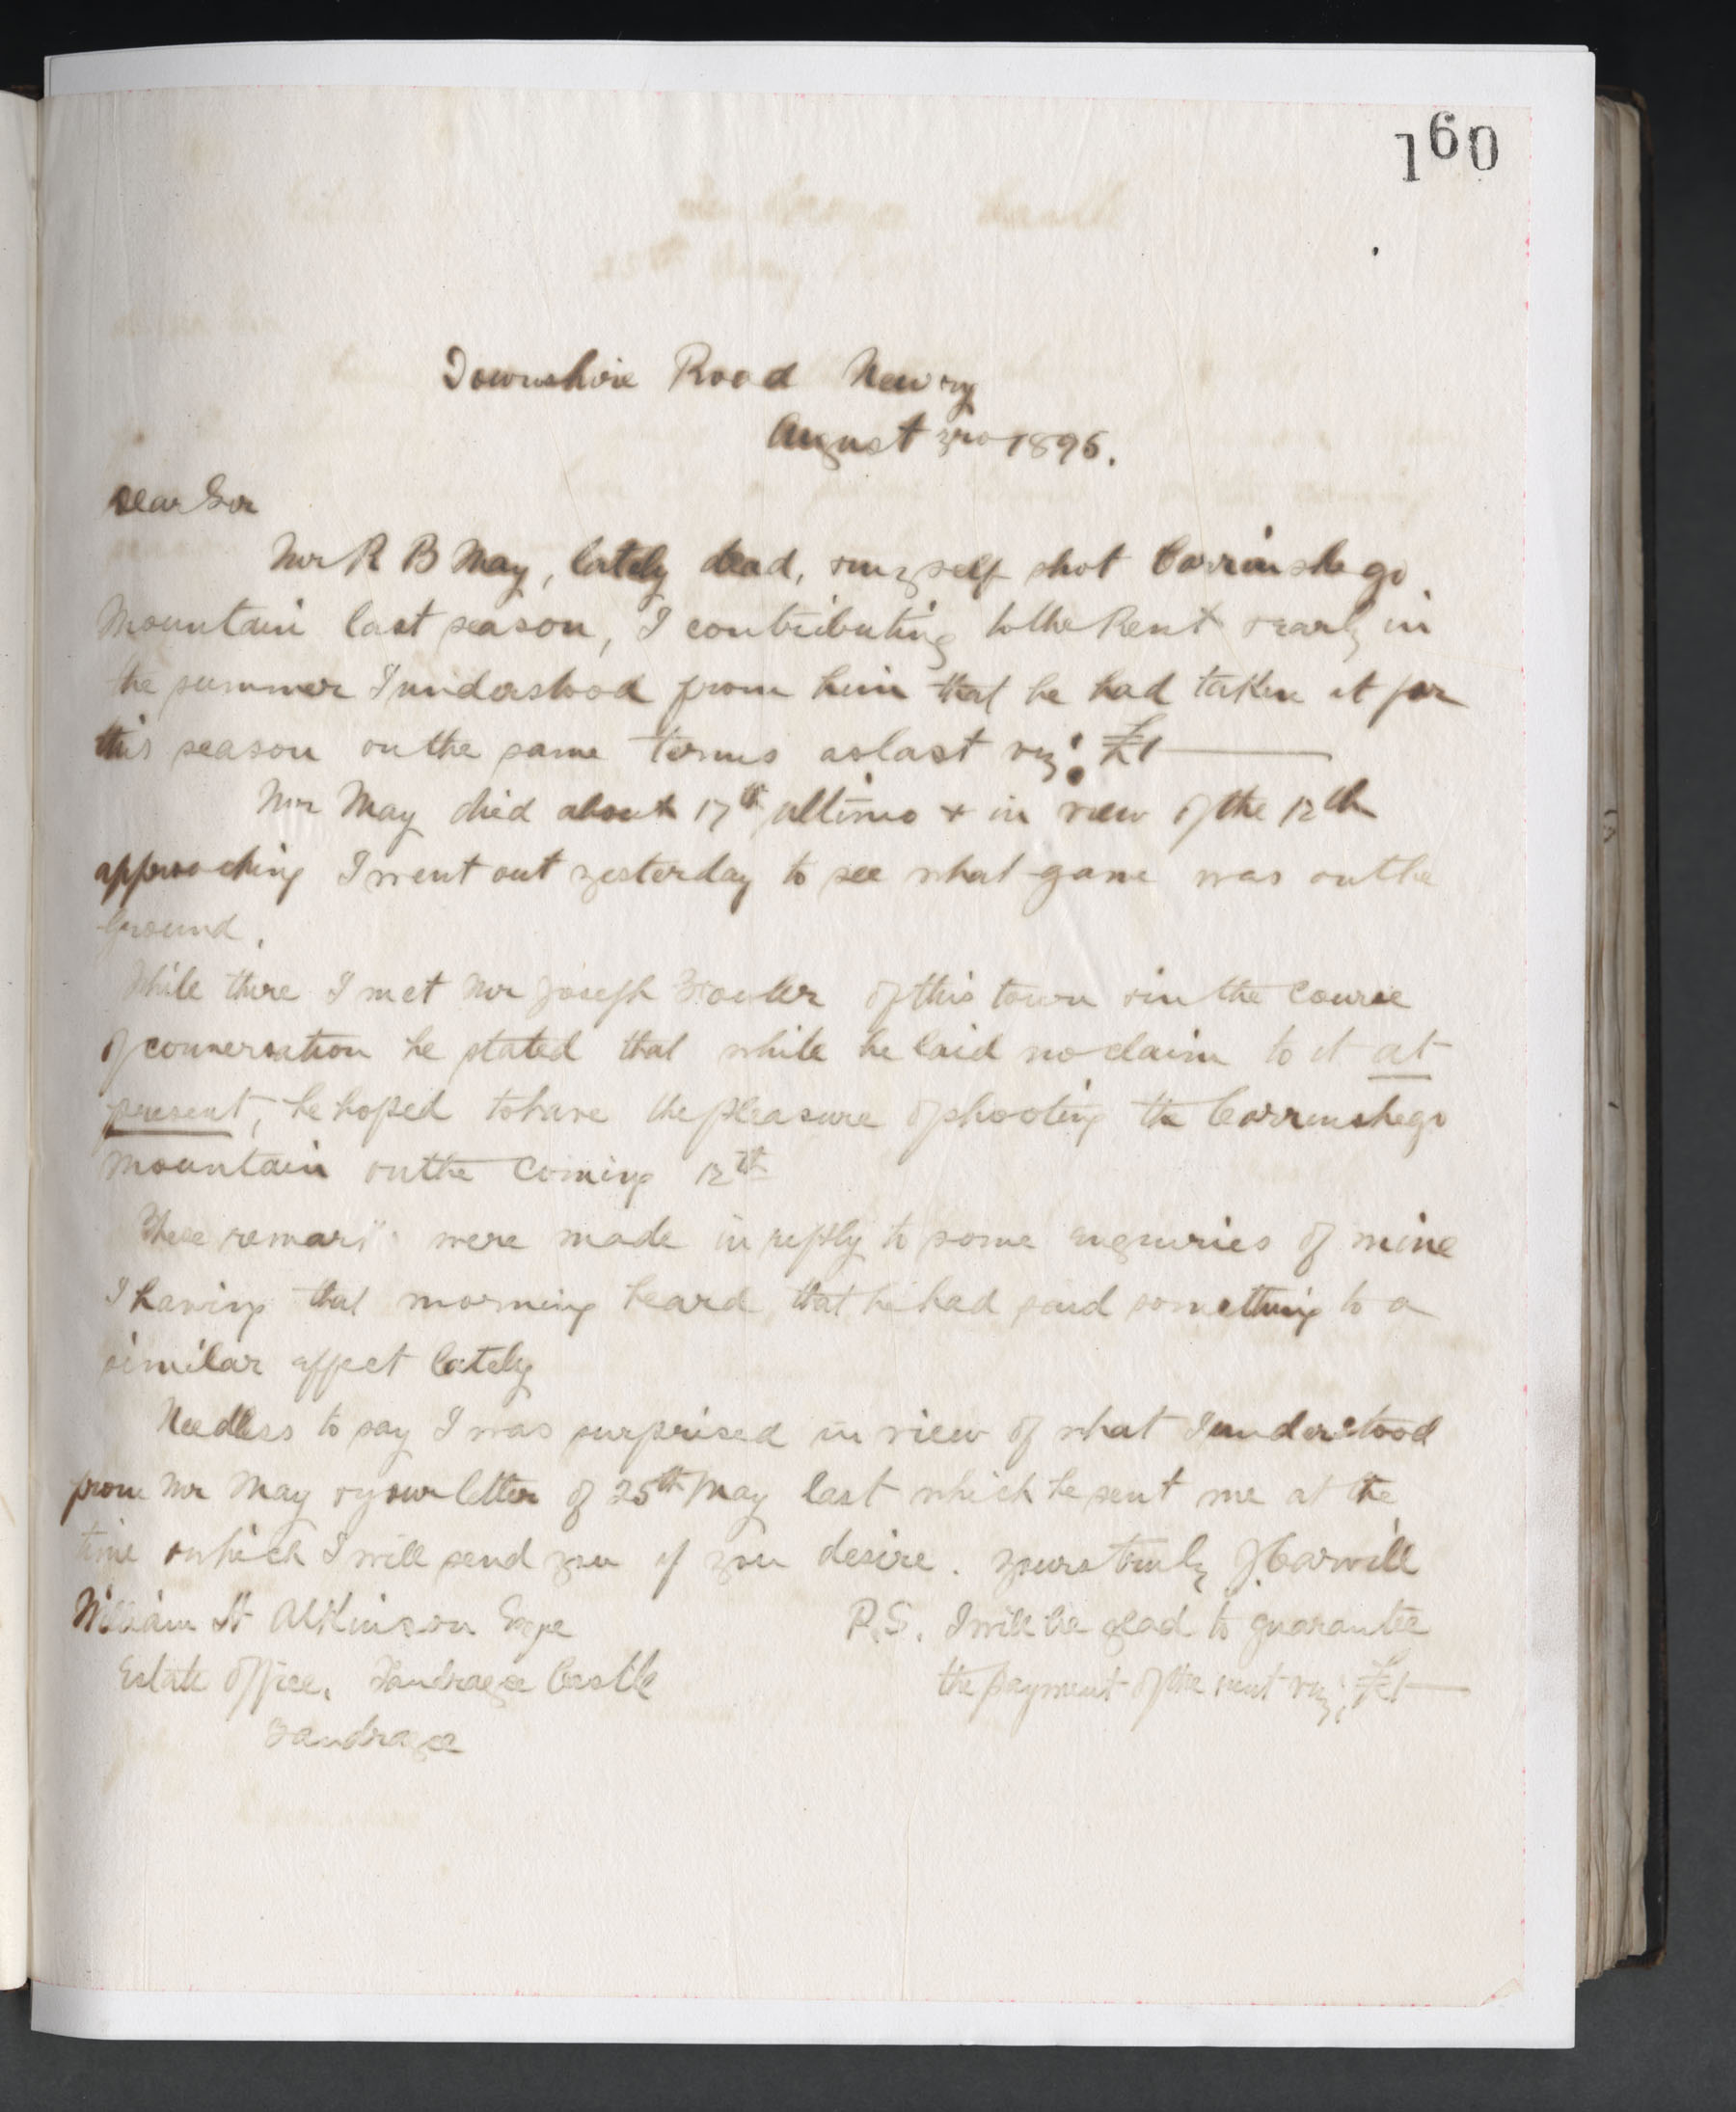 160
Downshire Road Newry
August 3rd 1896.
Dear Sir
Mr R B May, lately dead, & myself shot Carrinshego
Mountain last season, I contributing to the Rent & early in
the summer I understood from him that he had taken it for
this season on the same terms as last viz: £1
Mr May died about 17th ultimo & in view of the 12th
approaching I went out yesterday to see what game was on the
Ground.
While there I met Mr Joseph Fowler of this town & in the course
of conversation he stated that while he laid no claim to it at
present, he hoped to have the pleasure of shooting the Carrinshego
Mountain on the coming 12th
These remarks were made in reply to some enquiries of mine
I having that morning heard that he had said something to a
similar effect lately
Needless to say I was surprised in view of what I understood
from Mr May & your letter of 25th May last which he sent me at the
time & which I will send you if you desire. yours truly J Carvill
William H Atkinson Esqre
Estate Office, Tandragee Castle
Tandragee
P.S. I will be glad to guarantee
the payment of the rent viz; £1